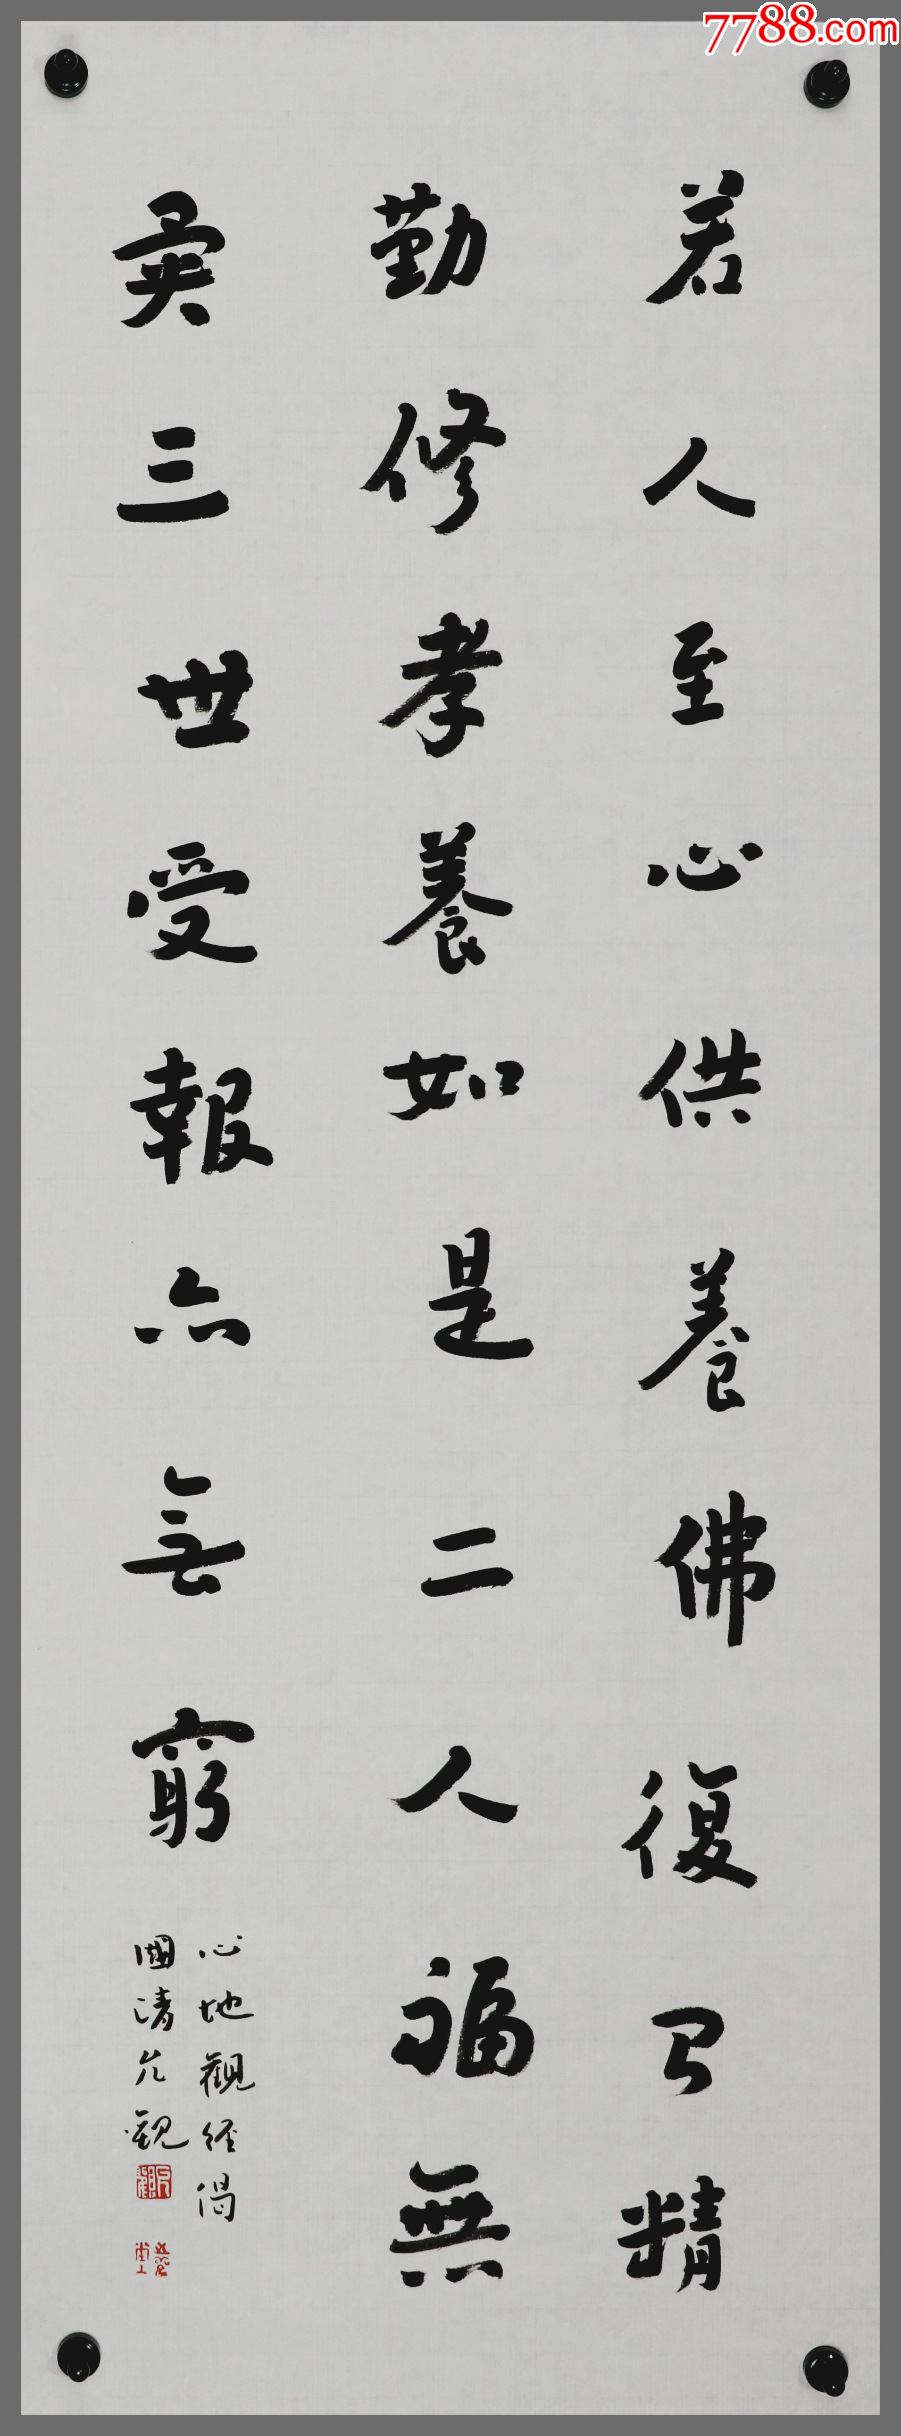 若人至心供養佛復有精
勤修孝養如是二人福無
異三世受報亦無窮
心地觀經偈
國清允觀
7788.com